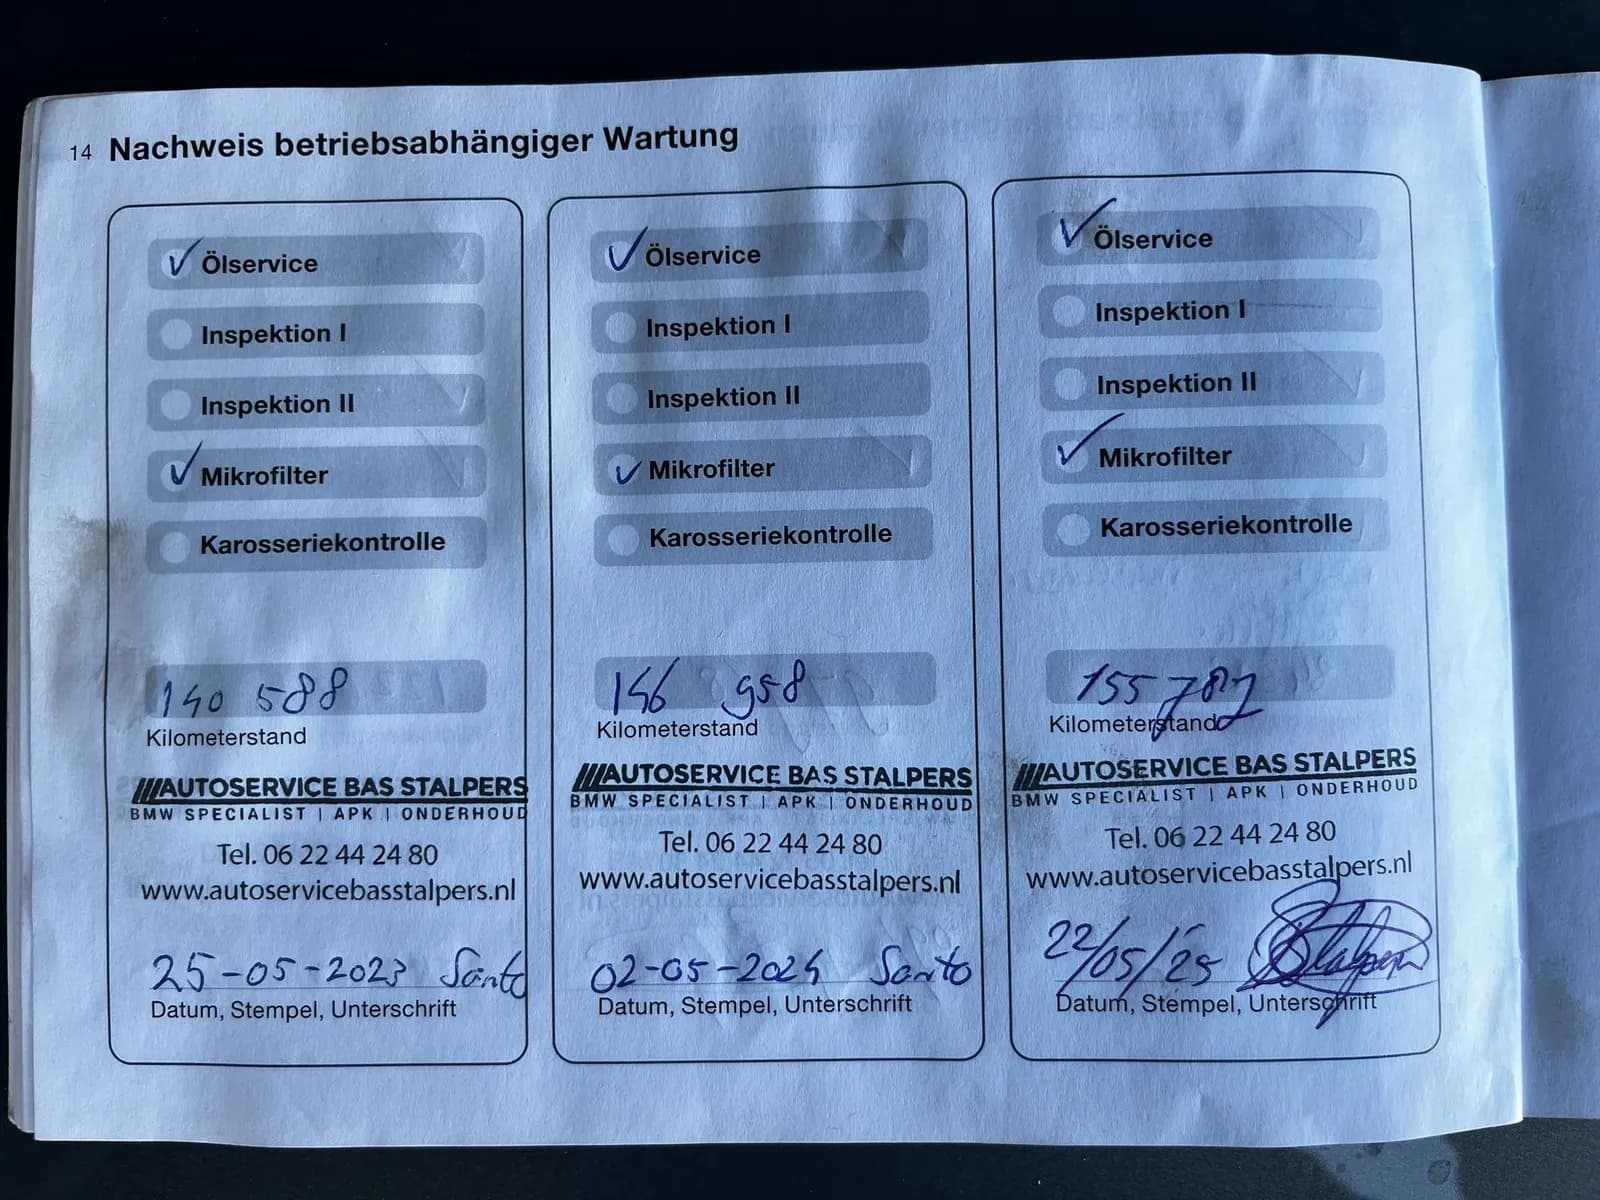 14 Nachweis betriebsabhängiger Wartung
✓ Ölservice
Inspektion I
Inspektion II
✓ Mikrofilter
Karosseriekontrolle
140 588
Kilometerstand
///AUTOSERVICE BAS STALPERS
BMW SPECIALIST | APK | ONDERHOUD
Tel. 06 22 44 24 80
www.autoservicebasstalpers.nl
25-05-2023 Santo
Datum, Stempel, Unterschrift
✓ Ölservice
Inspektion I
Inspektion II
✓ Mikrofilter
Karosseriekontrolle
958
Kilometerstand
///AUTOSERVICE BAS STALPERS
BMW SPECIALIST | APK | ONDERHOUD
Tel. 06 22 44 24 80
www.autoservicebasstalpers.nl
02-05-2024 Santo
Datum, Stempel, Unterschrift
✓ Ölservice
Inspektion I
Inspektion II
✓ Mikrofilter
Karosseriekontrolle
155 787
Kilometerstand
///AUTOSERVICE BAS STALPERS
BMW SPECIALIST | APK | ONDERHOUD
Tel. 06 22 44 24 80
www.autoservicebasstalpers.nl
22/05/25 Stalpers
Datum, Stempel, Unterschrift